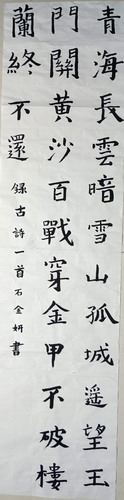 青海長雲暗雪山孤城遥望玉
門關黄沙百戰穿金甲不破樓
蘭終不還 録古詩一首石金妍書